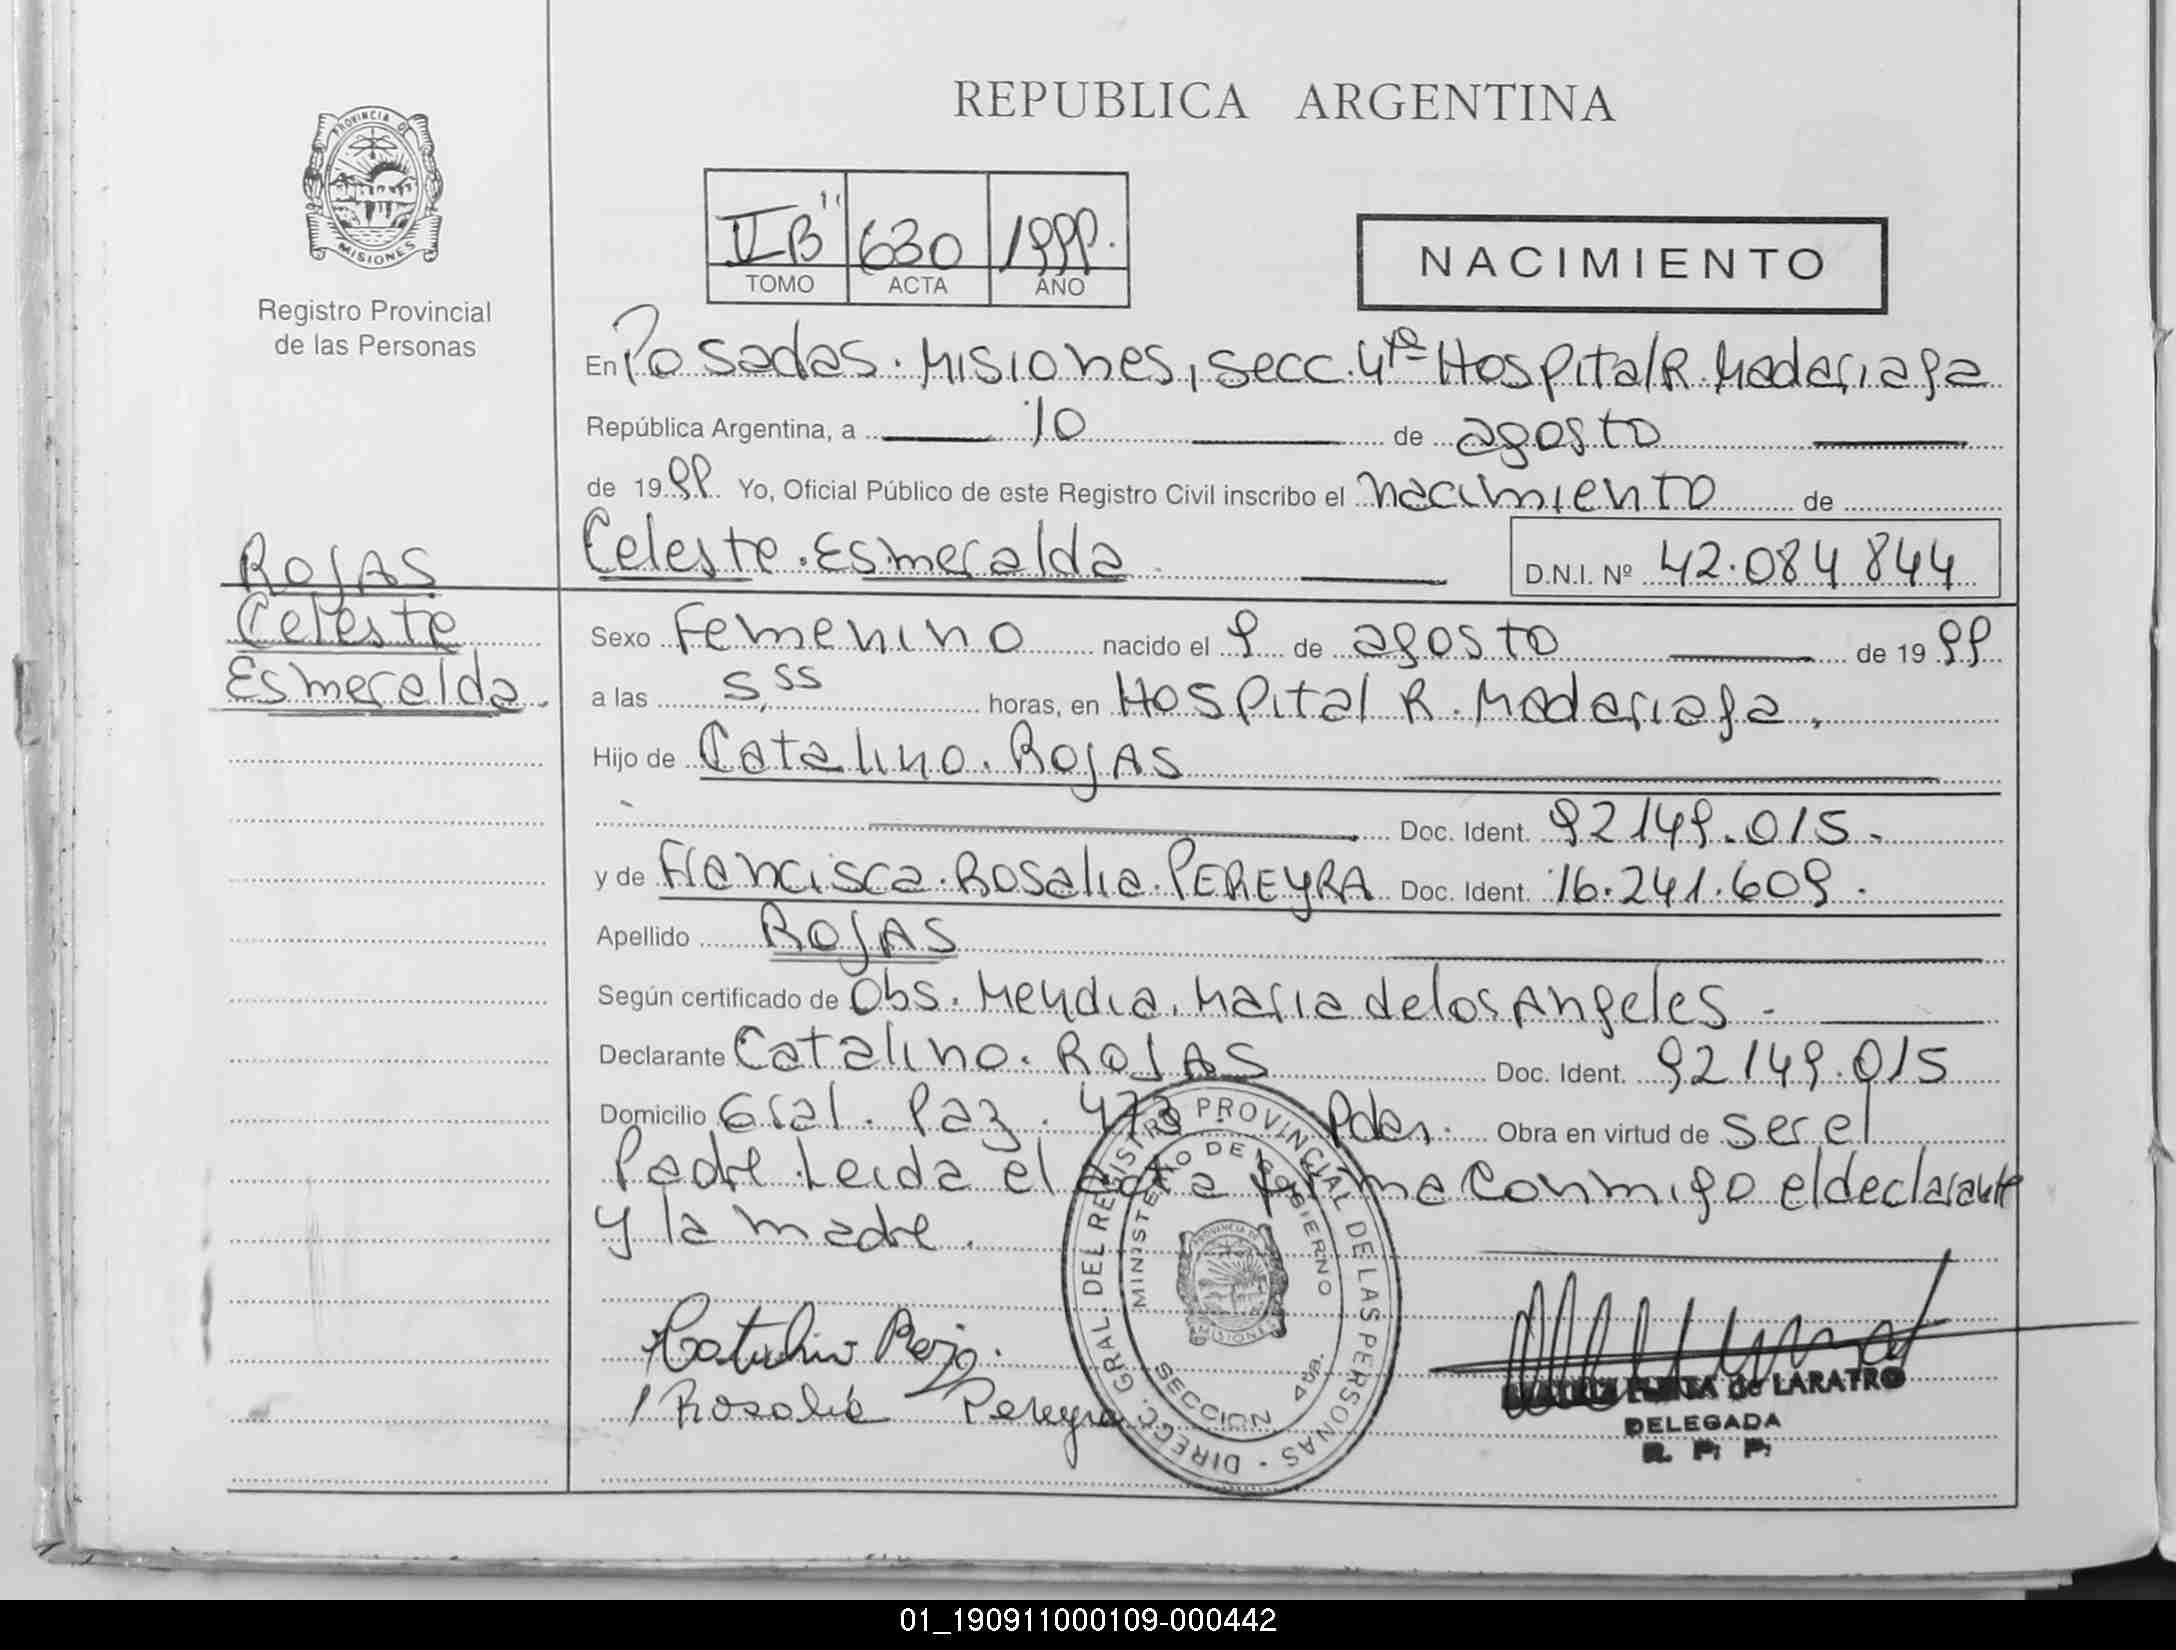 PROVINCIA DE
MISIONES
Registro Provincial
de las Personas
REPUBLICA ARGENTINA
V B" 630 1999.
TOMO ACTA AÑO
NACIMIENTO
En Posadas. Misiones, secc. 4ta Hospital R. Madariaga
República Argentina, a 10 de agosto
de 1999 Yo, Oficial Público de este Registro Civil inscribo el nacimiento de
Celeste Esmeralda D.N.I. Nº 42.084 844
ROJAS
Celeste
Esmeralda.
Sexo Femenino nacido el 9 de agosto de 1999
a las 5,55 horas, en Hospital R. Madariaga.
Hijo de Catalino. ROJAS
Doc. Ident. 92149.015.
y de Francisca. Rosalia. PEREYRA Doc. Ident. 16.241.609.
Apellido ROJAS
Según certificado de Obs. Mendia. Maria de los Angeles.
Declarante Catalino. ROJAS Doc. Ident. 92149.015
Domicilio Gral. Paz. 473 Pdas. Obra en virtud de ser el
Padre. Leida el acta firma conmigo el declarante
y la madre.
DIRECC. GRAL. DEL REGISTRO PROVINCIAL DE LAS PERSONAS
MINISTERIO DE GOBIERNO
PROVINCIA DE
MISIONES
SECCION 4ta.
Catalino Rojas.
Rosalia Pereyra
de LARATRO
DELEGADA
R. P. P.
01_190911000109-000442